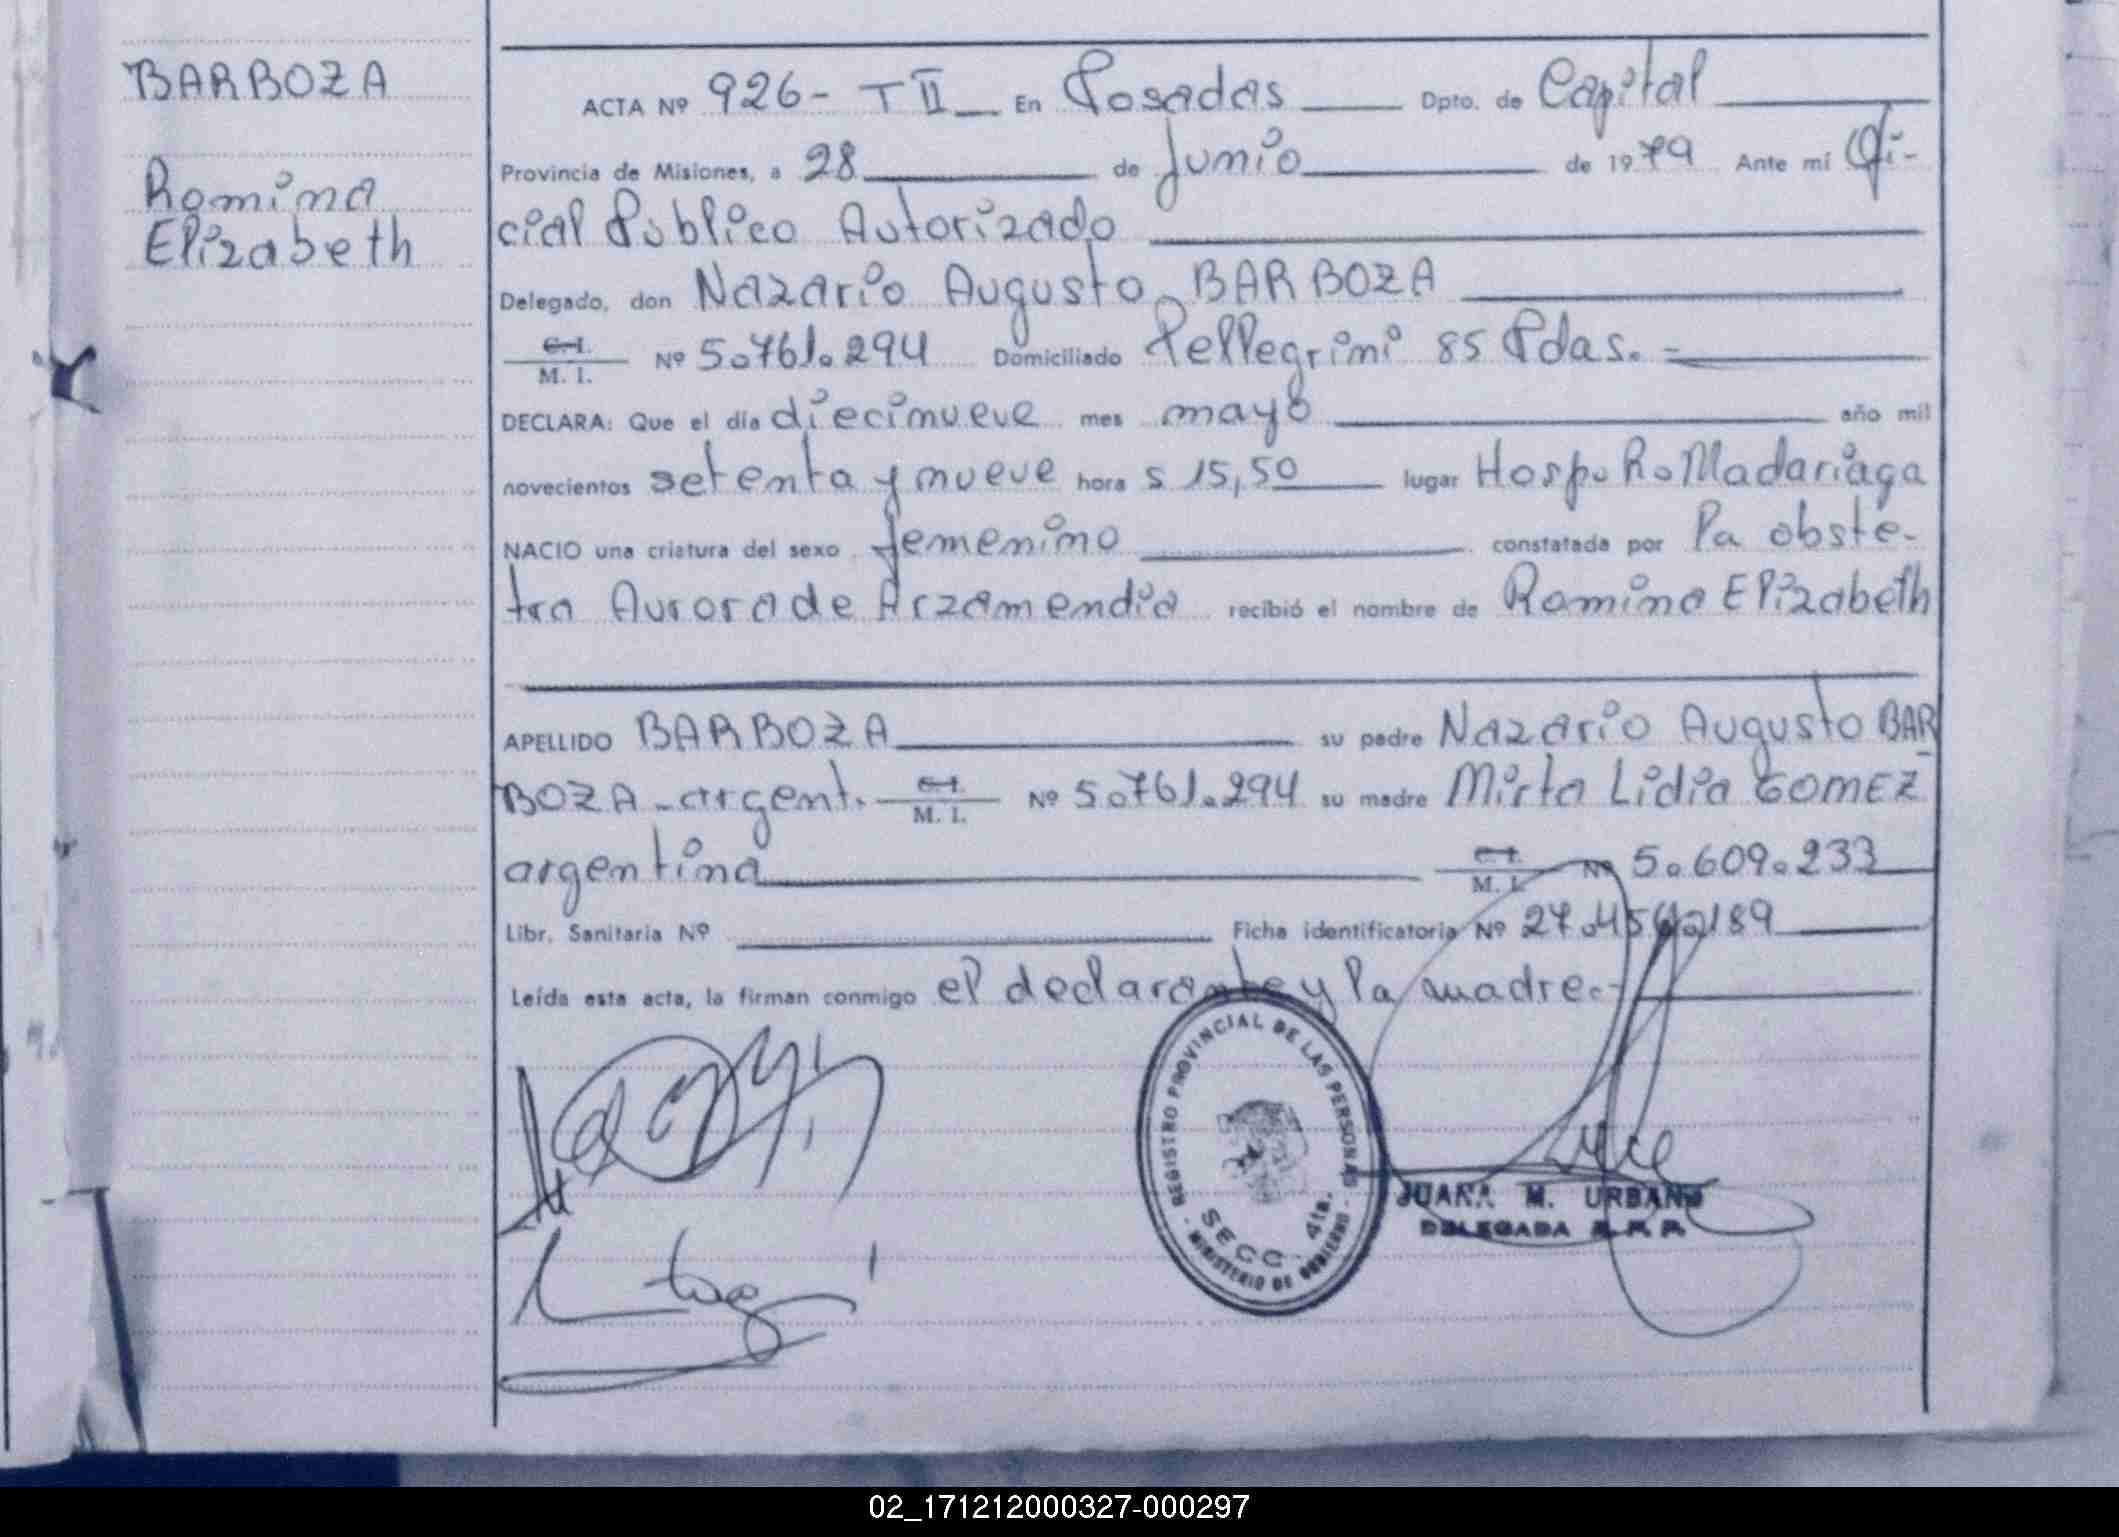 BARBOZA
Romina
Elizabeth
ACTA Nº 926- T II En Posadas Dpto. de Capital
Provincia de Misiones, a 28 de Junio de 1979 Ante mí Ofi-
cial Público Autorizado
Delegado, don Nazario Augusto BARBOZA
C.I.
M. I. Nº 5.761.294 Domiciliado Pellegrini 85 Pdas. =
DECLARA: Que el día diecinueve mes mayo año mil
novecientos setenta y nueve hora s 15,50 lugar Hosp. R. Madariaga
NACIO una criatura del sexo femenino constatada por la obsté-
tra Aurora de Arzamendia recibió el nombre de Romina Elizabeth
APELLIDO BARBOZA su padre Nazario Augusto BAR
BOZA - argent. C.I. M. I. Nº 5.761.294 su madre Mirta Lidia GOMEZ
argentina C.I. M. I. Nº 5.609.233
Libr. Sanitaria Nº Ficha identificatoria Nº
Leída esta acta, la firman conmigo el declarante y la madre.-
REGISTRO PROVINCIAL DE LAS PERSONAS
SECC. 4ta.
MINISTERIO DE GOBIERNO
JUANA M. URBANO
DELEGADA R. P. P.
02_171212000327-000297